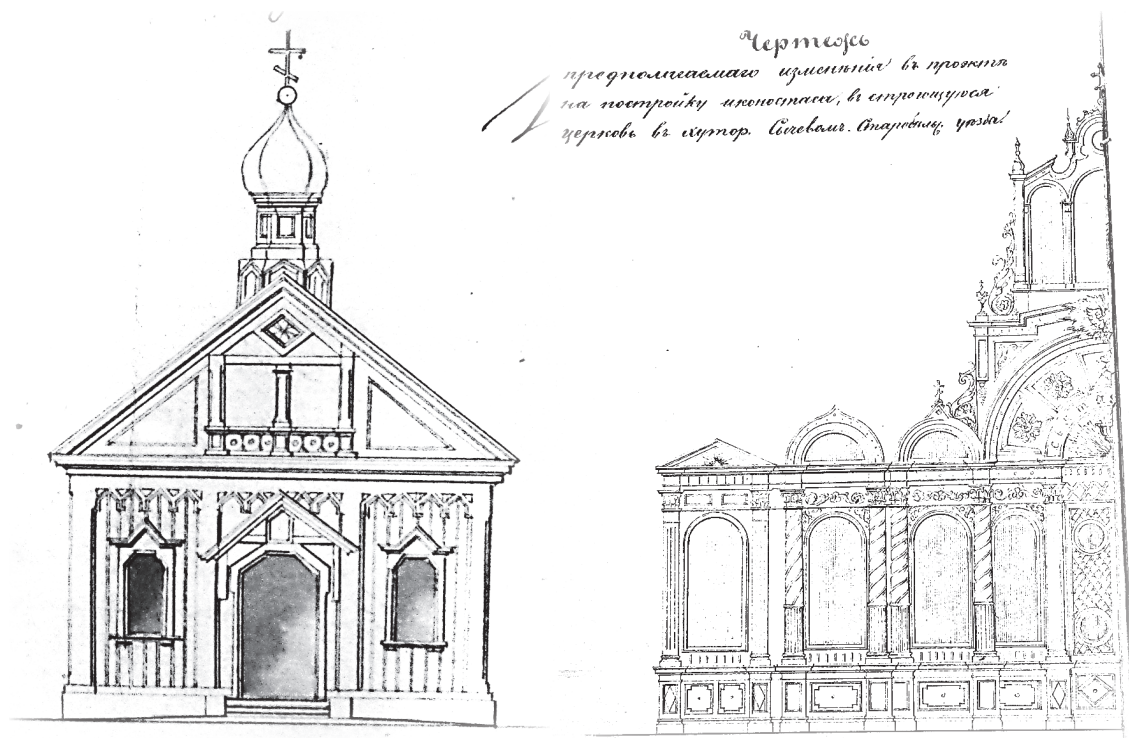 Чертежъ
предполагаемаго измѣненія въ проэктѣ
на постройку иконостаса, въ строющуюся
церковь въ хутор. Сычевомъ. Старобѣль. уѣзда.